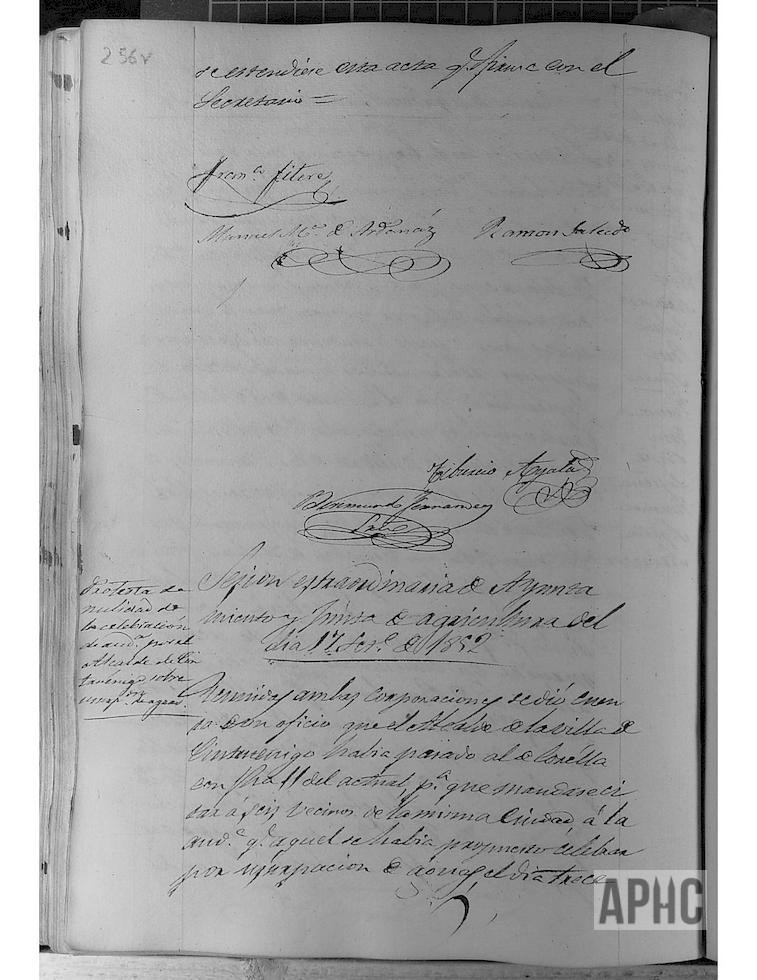 256v
se estendiese esta acta qe. firma con el
Secretario =
Franco. Fitero
Manuel Ma. de Ardanáz Ramon Salcedo
Tiburcio Ayala
Bermundo Fernandez
Protesta de
nulidad de
la celebración
de auda. por el
Alcalde de Cin
truénigo sobre
usurpon. de aguas.
Sesion estraordinaria de Ayunta
miento y Junta de agricultura del
dia 17 Set. de 1852
Reunidas ambas corporaciones se dió cuen
ta de un oficio que el Alcalde de la villa de
Cintruenigo habia pasado al de Corella
con fha 11 del actual, pa. que mandase ci
tar á seis vecinos de la misma Ciudad á la
auda. qe. aquel se habia propuesto celebrar
por usurpacion de aguas el dia trece
APHC